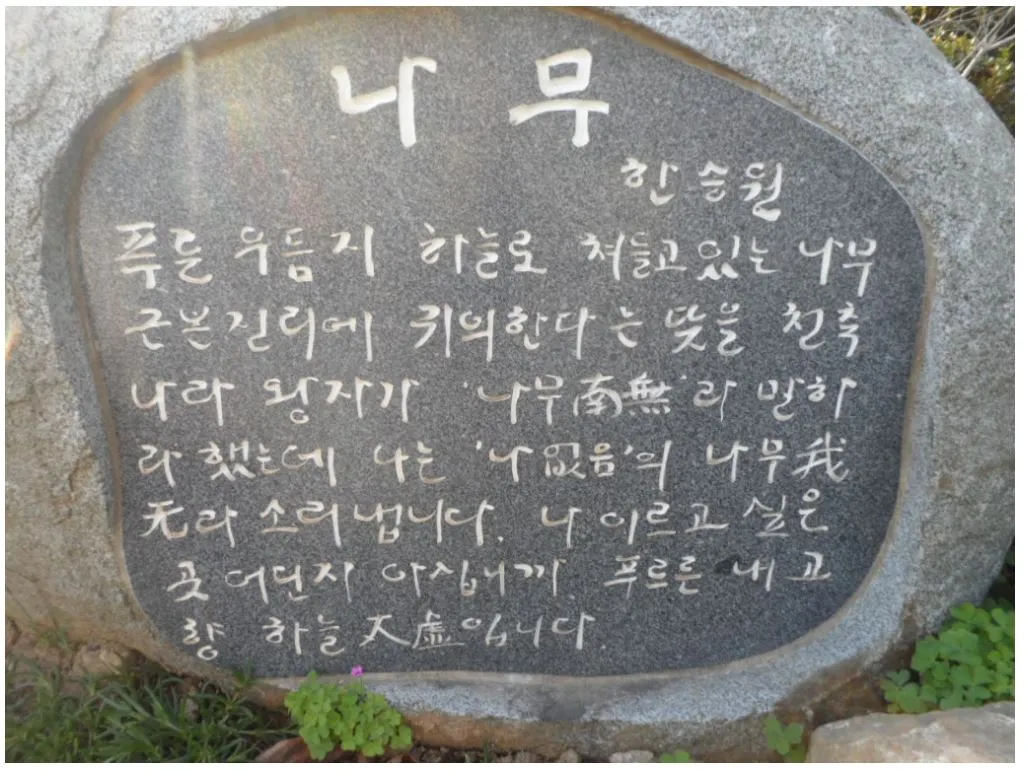 나무
한승원
푸른 우듬지 하늘로 쳐들고 있는 나무
근본진리에 귀의한다는 뜻을 천축
나라 왕자가 '나무南無'라 말하
라 했는데 나는 '나 없음'의 나무我
无라 소리 냅니다. 나 이르고 싶은
곳 어딘지 아십니까. 푸르른 내 고
향 하늘 太虛입니다.